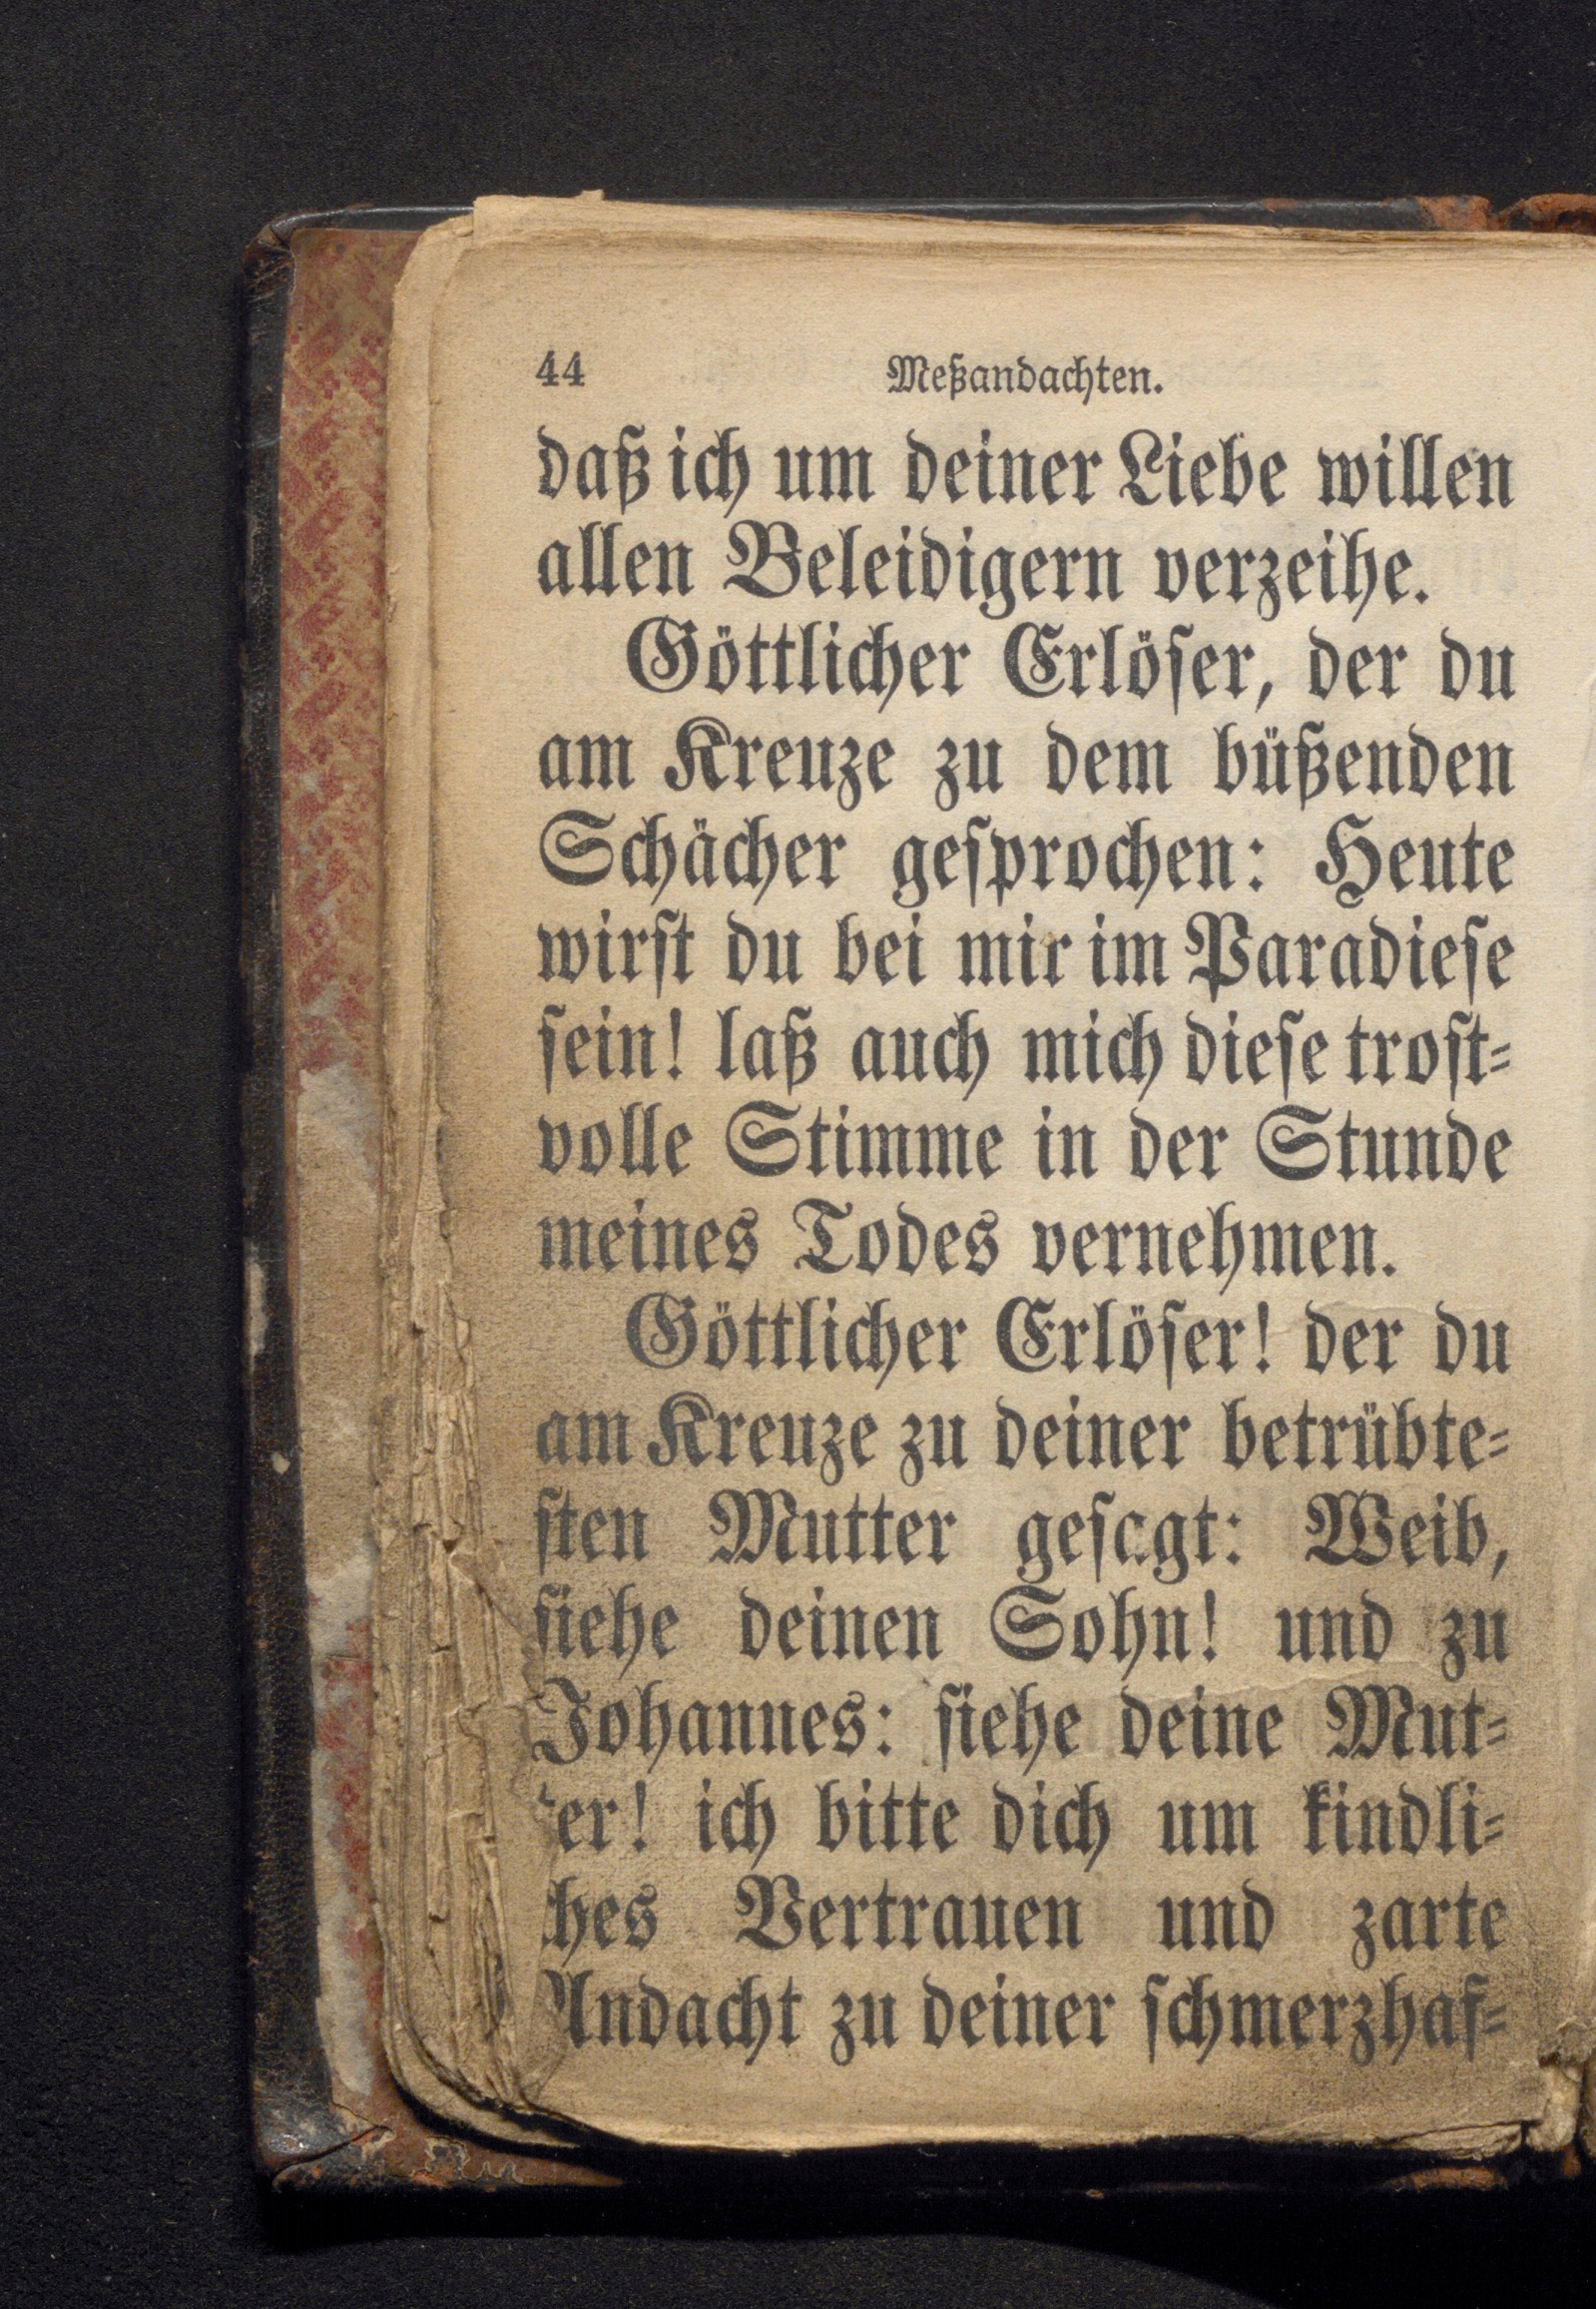 44 Meßandachten.
daß ich um deiner Liebe willen
allen Beleidigern verzeihe.
Göttlicher Erlöſer, der du
am Kreuze zu dem büßenden
Schächer geſprochen: Heute
wirſt du bei mir im Paradieſe
ſein! laß auch mich dieſe troſt⸗
volle Stimme in der Stunde
meines Todes vernehmen.
Göttlicher Erlöſer! der du
am Kreuze zu deiner betrübte⸗
ſten Mutter geſagt: Weib,
ſiehe deinen Sohn! und zu
Johannes: ſiehe deine Mut⸗
ter! ich bitte dich um kindli⸗
ches Vertrauen und zarte
Andacht zu deiner ſchmerzhaf⸗